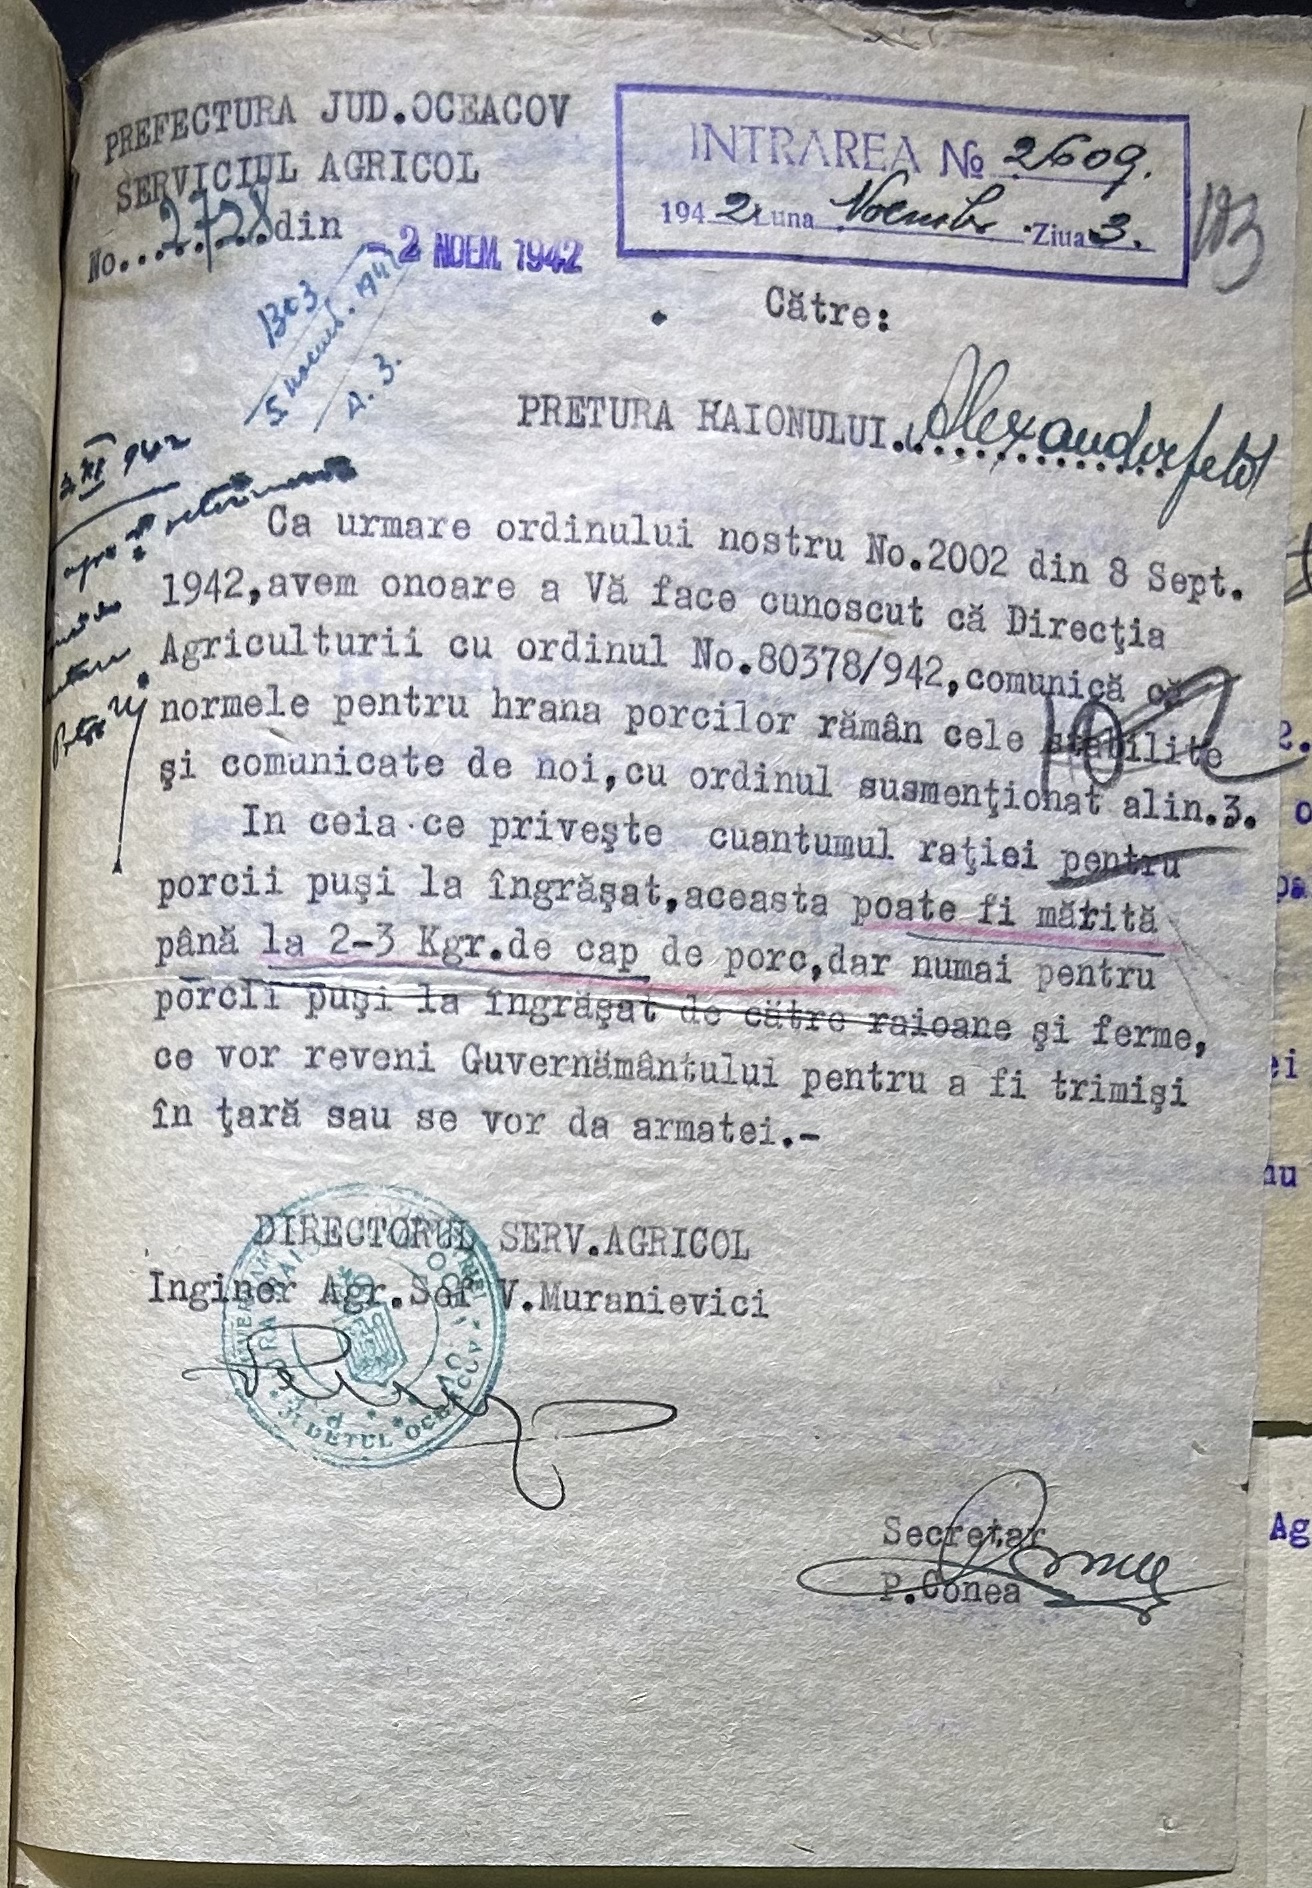 PREFECTURA JUD.OCEACOV
SERVICIUL AGRICOL
No....2728 din - 2 NOEM. 1942
INTRAREA No 2609.
1942 Luna Noembr Ziua 3.
193
Către:
PRETURA RAIONULUI. Alexanderfeld
942
Ca urmare ordinului nostru No.2002 din 8 Sept.
1942,avem onoare a Vă face cunoscut că Direcţia
Agriculturii cu ordinul No.80378/942,comunică că
normele pentru hrana porcilor rămân cele stabilite
şi comunicate de noi,cu ordinul susmenţionat alin.3.
In ceia ce priveşte cuantumul raţiei pentru
porcii puşi la îngrăşat,aceasta poate fi mărită
până la 2-3 Kgr.de cap de porc,dar numai pentru
porcii puşi la îngrăşat de către raioane şi ferme,
ce vor reveni Guvernământului pentru a fi trimişi
în ţară sau se vor da armatei.-
DIRECTORUL SERV.AGRICOL
Inginer Agr.Sef V.Muranievici
JUDETUL OCEACOV
Secretar
P.Conea